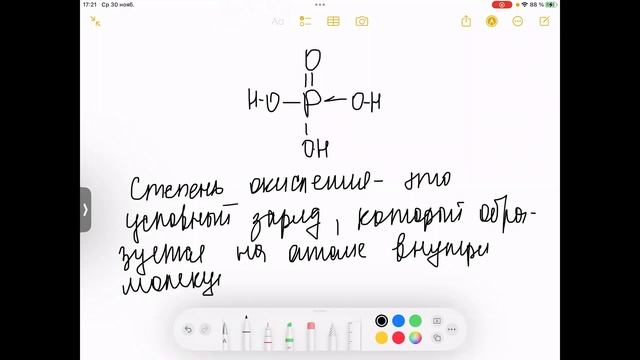 17:21 Ср 30 нояб.
88 %
O
H-O-P-O-H
OH
Степень окисления - это
условный заряд, который обра-
зуется на атоме внутри
молеку